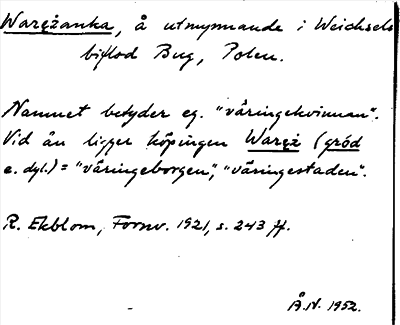 Waręžanka, å utmynnande i Weichsels
biflod Bug, Polen.
Namnet betyder eg. "väringekvinnan".
Vid ån ligger köpingen Waręž (gród
e. dyl.) = "väringeborgen", "väringestaden".
R. Ekblom, Fornv. 1921, s. 243 ff.
Å.N. 1952.